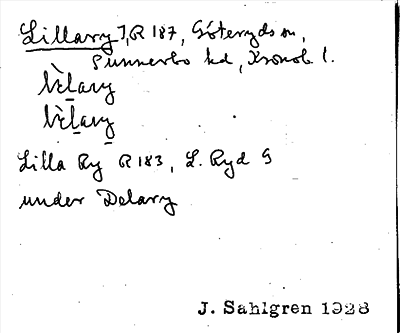 Lillary J, R 187, Göteryds sn,
Sunnerbo hd, Kronob l.
Lilla Ry R 183, L. Ryd G
under Delary
J. Sahlgren 1928